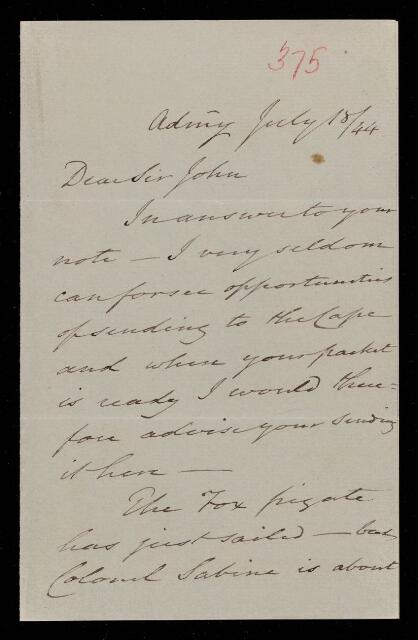 375
Admy July 18/44
Dear Sir John
In answer to your
note — I very seldom
can forsee opportunities
of sending to the Cape
and when your packet
is ready I would there-
fore advise your sending
it here —
The Fox frigate
has just sailed — but
Colonel Sabine is about